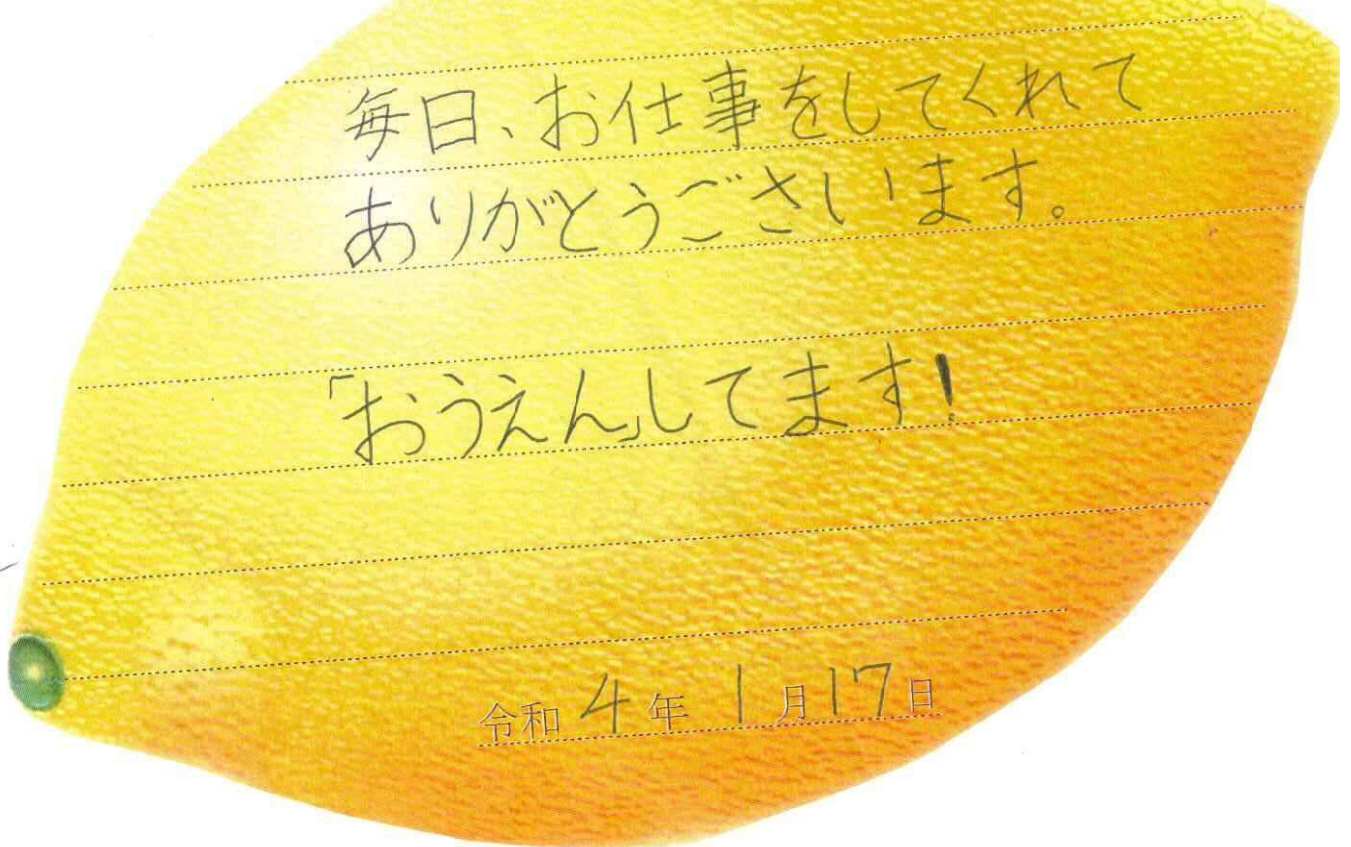 毎日、お仕事をしてくれて
ありがとうございます。
「おうえん」してます!
令和4年1月17日